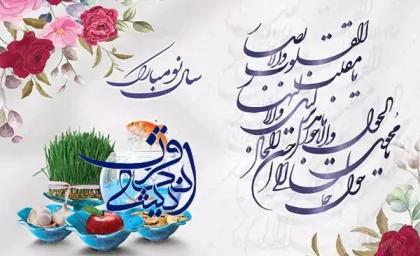 سال نو مبارک
یا مقلب القلوب والابصار
یا مدبر اللیل والنهار
یا محول الحول والاحوال
حول حالنا الی احسن الحال